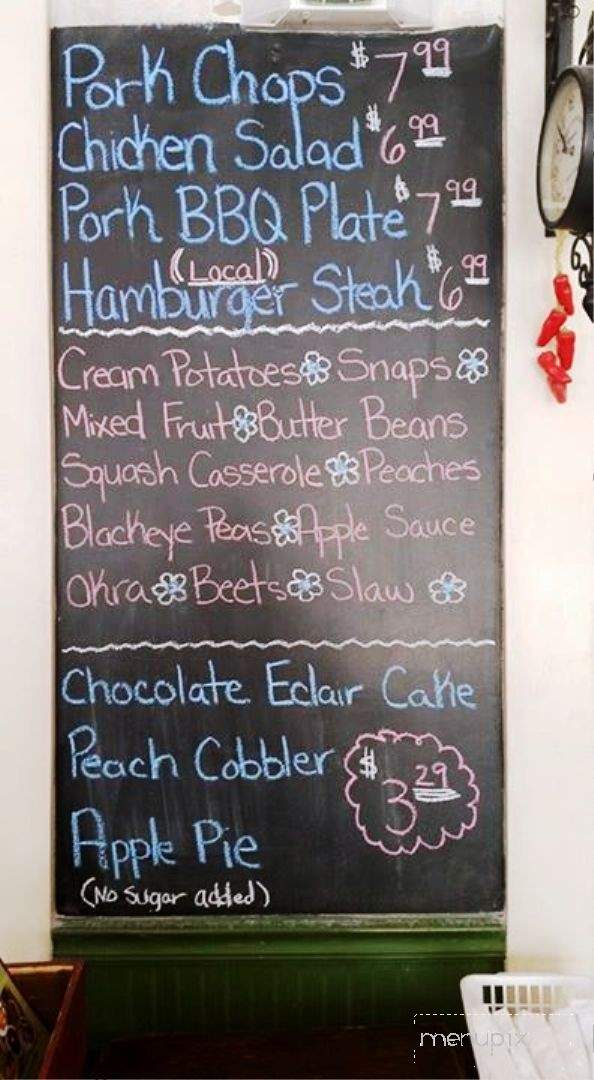 Pork Chops $7.99
Chicken Salad $6.99
Pork BBQ Plate $7.99
(Local)
Hamburger Steak $6.99
Cream Potatoes Snaps
Mixed Fruit Butter Beans
Squash Casserole Peaches
Blackeye Peas Apple Sauce
Okra Beets Slaw
Chocolate Eclair Cake
Peach Cobbler $3.29
Apple Pie
(No sugar added)
menupix